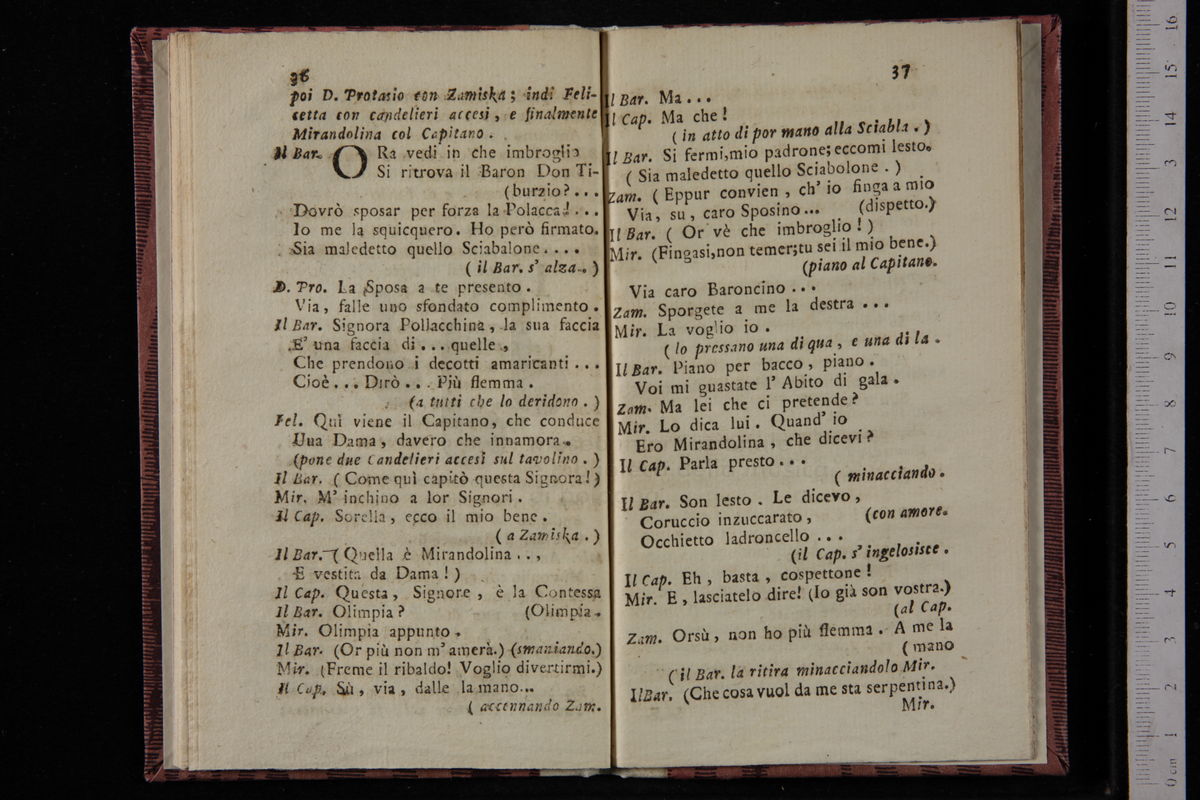 36
poi D. Protasio con Zamiska; indi Feli-
cetta con candelieri accesi, e finalmente
Mirandolina col Capitano.
Il Bar. ORa vedi in che imbroglio
Si ritrova il Baron Don Ti-
(burzio?...
Dovrò sposar per forza la Polacca!...
Io me la squicquero. Ho però firmato.
Sia maledetto quello Sciabalone....
( il Bar. s' alza. )
D. Pro. La Sposa a te presento.
Via, falle uno sfondato complimento.
Il Bar. Signora Pollacchina, la sua faccia
E' una faccia di... quelle,
Che prendono i decotti amaricanti...
Cioè... Dirò... Più flemma.
(a tutti che lo deridono. )
Fel. Quì viene il Capitano, che conduce
Una Dama, davero che innamora.
(pone due Candelieri accesi sul tavolino. )
Il Bar. ( Come quì capitò questa Signora! )
Mir. M' inchino a lor Signori.
Il Cap. Sorella, ecco il mio bene.
( a Zamiska. )
Il Bar. ( Quella è Mirandolina..,
E vestita da Dama! )
Il Cap. Questa, Signore, è la Contessa
Il Bar. Olimpia? (Olimpia.
Mir. Olimpia appunto.
Il Bar. (Or più non m' amerà.) (smaniando.)
Mir. (Freme il ribaldo! Voglio divertirmi.)
Il Cap. Sù, via, dalle la mano...
( accennando Zam.
37
Il Bar. Ma...
Il Cap. Ma che!
( in atto di por mano alla Sciabla. )
Il Bar. Si fermi, mio padrone; eccomi lesto.
( Sia maledetto quello Sciabolone. )
Zam. ( Eppur convien, ch' io finga a mio
Via, su, caro Sposino... (dispetto.)
Il Bar. ( Or vè che imbroglio! )
Mir. (Fingasi, non temer; tu sei il mio bene.)
(piano al Capitano.
Via caro Baroncino...
Zam. Sporgete a me la destra...
Mir. La voglio io.
( lo pressano una di qua, e una di la.
Il Bar. Piano per bacco, piano.
Voi mi guastate l' Abito di gala.
Zam. Ma lei che ci pretende?
Mir. Lo dica lui. Quand' io
Ero Mirandolina, che dicevi?
Il Cap. Parla presto...
( minacciando.
Il Bar. Son lesto. Le dicevo,
Coruccio inzuccarato, (con amore.
Occhietto ladroncello...
(il Cap. s' ingelosisce.
Il Cap. Eh, basta, cospettone!
Mir. E, lasciatelo dire! (Io già son vostra.)
(al Cap.
Zam. Orsù, non ho più flemma. A me la
( mano
( il Bar. la ritira minacciandolo Mir.
Il Bar. (Che cosa vuol da me sta serpentina.)
Mir.
0 cm 1 2 3 4 5 6 7 8 9 10 11 12 13 14 15 16